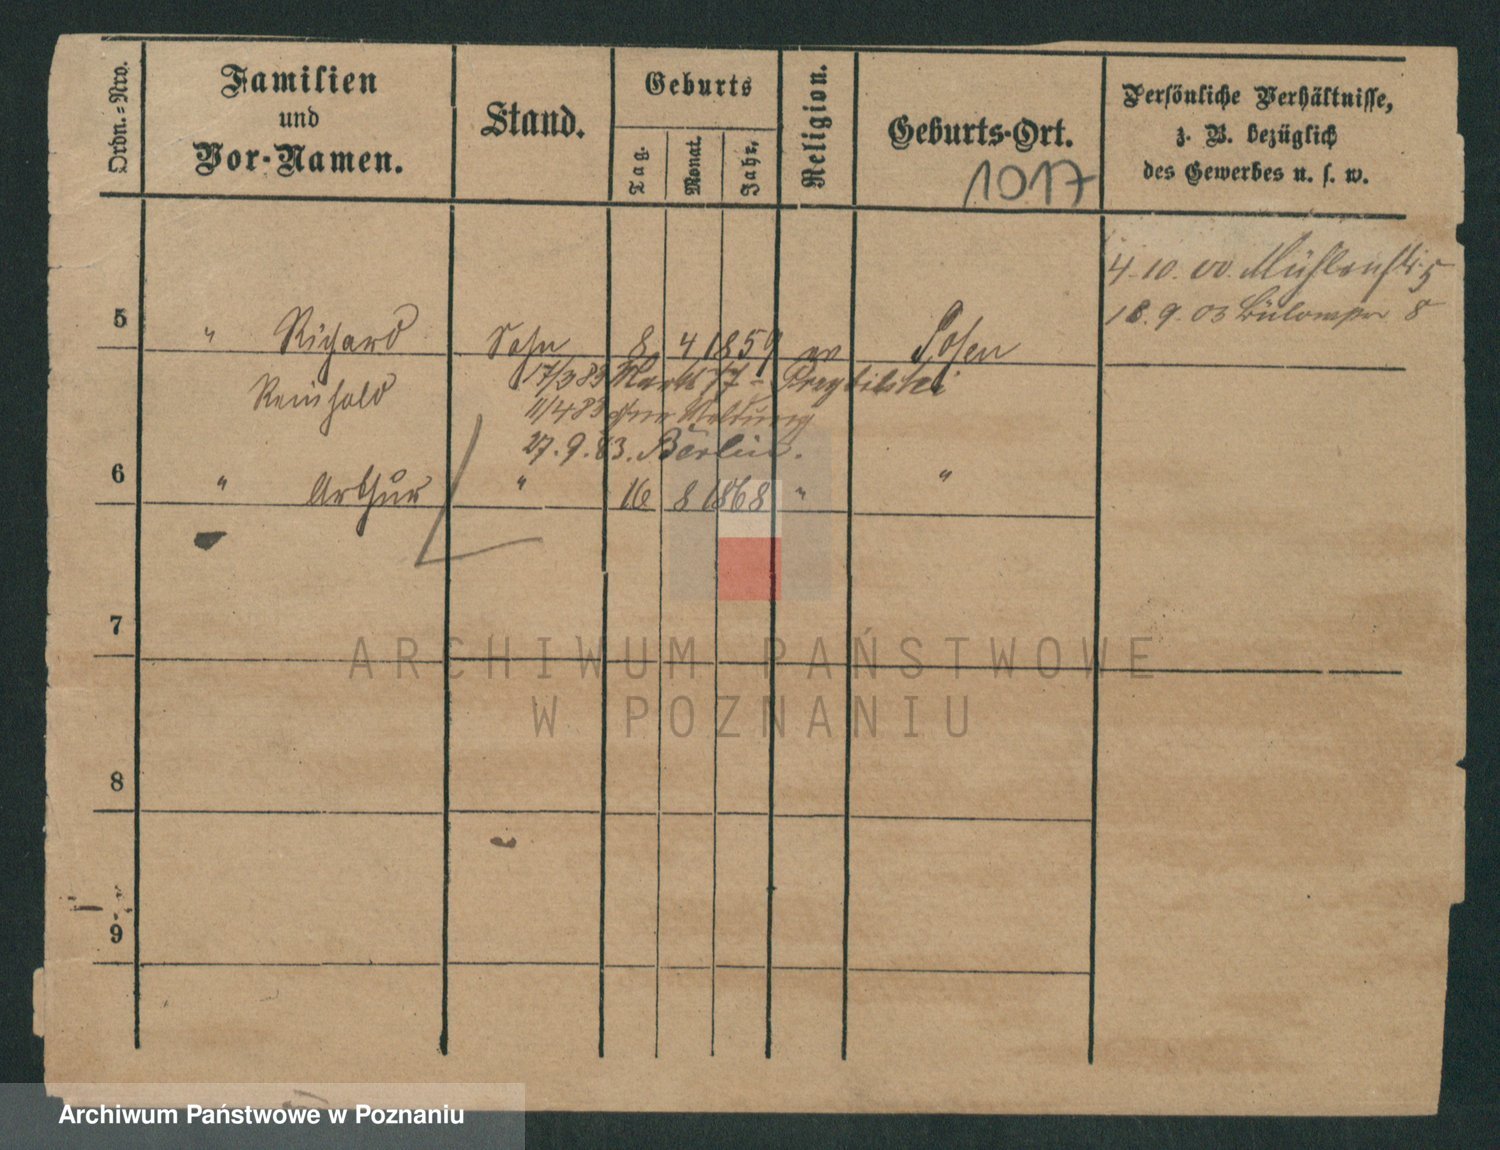 Ordn.-Nro.
Familien
und
Vor-Namen.
Stand.
Geburts
Tag.
Monat.
Jahr.
Religion.
Geburts-Ort.
1017
Persönliche Verhältnisse,
z. B. bezüglich
des Gewerbes u. s. w.
4. 10. 00. Mühlenstr. 5
18. 9. 03 Bülowstr 8
5 " Richard Sohn 8 4 1859 ev Posen
Reinhold
17/3 83 Markt 77 -
11/4 83 ohne Meldung
27. 9. 83. Berlin.
6 " Arthur " 16 8 1868 " "
7
ARCHIWUM PAŃSTWOWE
W POZNANIU
8
9
Archiwum Państwowe w Poznaniu